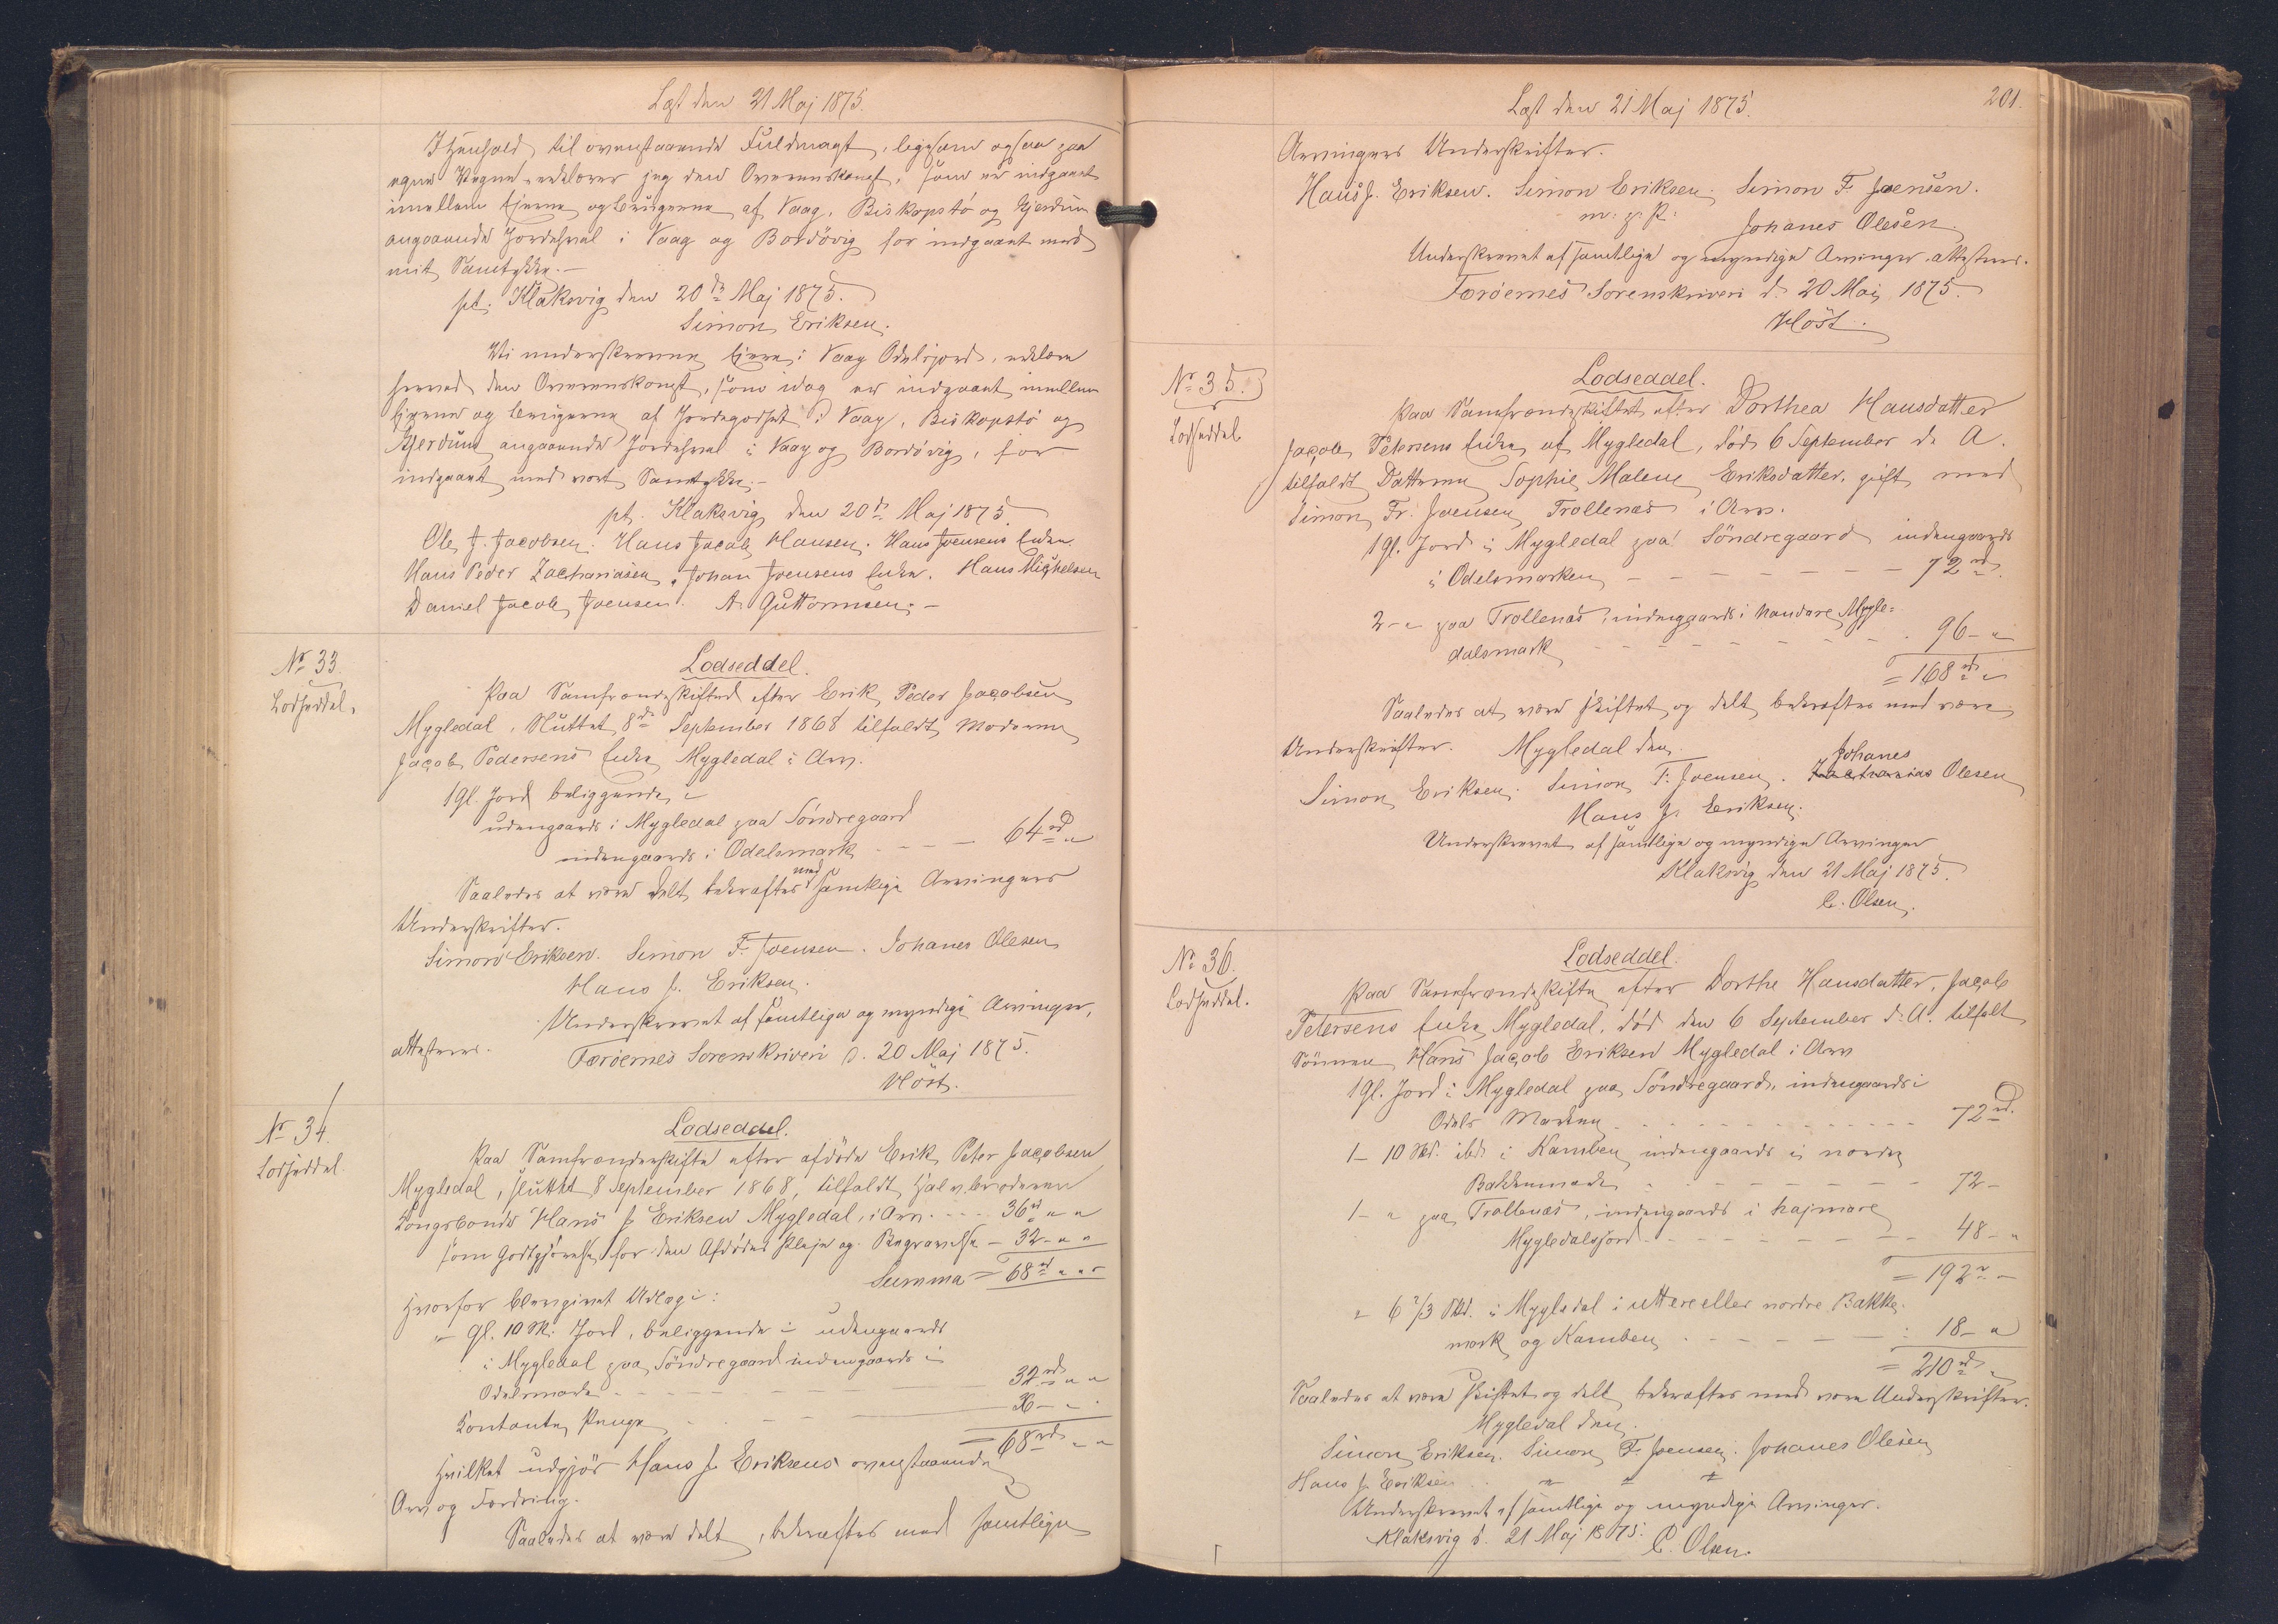 Læst den 21 Maj 1875.
I Henhold til ovenstaaende Fuldmagt, ligesom ogsaa paa
egne Vegne, erklærer jeg den Overenskomst, som er indgaaet
imellem Ejerne og Brugerne af Vaag, Biskopstö og Gjerdum
angaaende Jordeskræl i Vaag og Bordövig for indgaaet med
mit Samtykke.-
pt. Klaksvig den 20de Maj 1875.
Simon Eriksen.
Vi underskrevne Ejere i Vaag Odelsjord, erklære
herved den Overenskomst, som idag er indgaaet imellem
Ejerne og Brugerne af Jordegodset i Vaag, Biskopstö og
Gjerdum angaaende i Vaag og Bordövig, for
indgaaet med vort Samtykke.-
pt. Klaksvig den 20de Maj 1875.
Ole J. Jacobsen. Hans Jacob Hansen. Hans Joensens Enke.
Hans Peder Zachariasen, Johan Joensens Enke. Hans Michelsen
Daniel Jacob Joensen. A. Guttormsen.-
No 33.
Lodseddel.
Lodseddel.
Paa Samfrændeskiftet efter Erik Peder Jacobsen
Mygledal, Sluttet 8de September 1868 tilfaldt Moderen
Jacob Pedersens Enke Mygledal i Arv.
1 Gl. Jord beliggende i
udengaards i Mygledal paa Söndregaard
indengaards i Odelsmark - - - 64 rd "
Saaledes at være delt bekræftes med samtlige Arvingers
Underskrifter.
Simon Eriksen. Simon F. Joensen. Johanes Olesen
Hans J. Eriksen.
Underskrevet af samtlige og myndige Arvinger,
attesteres.
Færöernes Sorenskriveri d. 20 Maj 1875.
Höst.
No 34.
Lodseddel.
Lodseddel.
Paa Samfrændeskifte efter afdöde Erik Peter Jacobsen
Mygledal, sluttet 8 September 1868, tilfaldt Halvbroderen
Kongsbonde Hans J. Eriksen Mygledal, i Arv. - - - 36 rd " "
som Godtgjörelse for den Afdödes Pleje og Begravelse - 32 - " "
Summa = 68 rd " "
Hvorfor blev givet Udlæg i:
" Gl. 10 Sk. Jord, beliggende i udengaards
i Mygledal paa Söndregaard indengaards i
Odelsmark - - - 32 rd " "
Kontante Penge - - - 36 - " "
= 68 rd " "
Hvilket udgjör Hans J. Eriksens ovenstaaende
Arv og Fordring.
Saaledes at være delt, bekræftes med samtlige
201.
Læst den 21 Maj 1875.
Arvingers Underskrifter.
Hans J. Eriksen. Simon Eriksen. Simon F. Joensen.
m. p. P.
Johanes Olesen.
Underskrevet af samtlige og myndige Arvinger attesteres.
Færöernes Sorenskriveri d. 20 Maj 1875.
Höst.
No 35.
Lodseddel
Lodseddel.
Paa Samfrændeskiftet efter Dorthea Hansdatter
Jacob Petersens Enke af Mygledal, död 6 September d. A.
tilfaldt Datteren Sophie Malene Eriksdatter, gift med
Simon Fr. Joensen Trollenæs i Arv.
1 Gl. Jord i Mygledal paa Söndregaard indengaards
i Odelsmarken - - - 72 rd
2 - " paa Trollenæs, indengaards i Mygle=
dalsmark - - - 96 - "
= 168 rd "
Saaledes at være skiftet og delt bekræftes med vore
Underskrifter. Mygledal den
Simon Eriksen. Simon F. Joensen. Zacharias Johanes Olesen
Hans J. Eriksen.
Underskrevet af samtlige og myndige Arvinger
Klaksvig den 21 Maj 1875.
C. Olsen.
No 36.
Lodseddel.
Lodseddel.
Paa Samfrændeskifte efter Dorthe Hansdatter, Jacob
Petersens Enke Mygledal, död den 6 September d. A. tilfalt
Sönnen Hans Jacob Eriksen Mygledal i Arv
1 Gl. Jord i Mygledal paa Söndregaard, indengaards i
Odels Marken - - - 72 rd.
1 - 10 Skd. ibd. i Kamben indengaards i nordre
Bakkemark - - - 72 -
1 - " paa Trollenæs, indengaards i
Mygledalsjord - - - 48 - "
= 192 rd -
" 6 2/3 Skd. i Mygledal i ytre eller nordre Bakke=
mark og Kamben - - - 18 - "
= 210 rd "
Saaledes at være skiftet og delt bekræftes med vore Underskrifter.
Mygledal den
Simon Eriksen. Simon F. Joensen. Johanes Olesen
Hans J. Eriksen
Underskrevet af samtlige og myndige Arvinger.
Klaksvig d. 21 Maj 1875. C. Olsen.